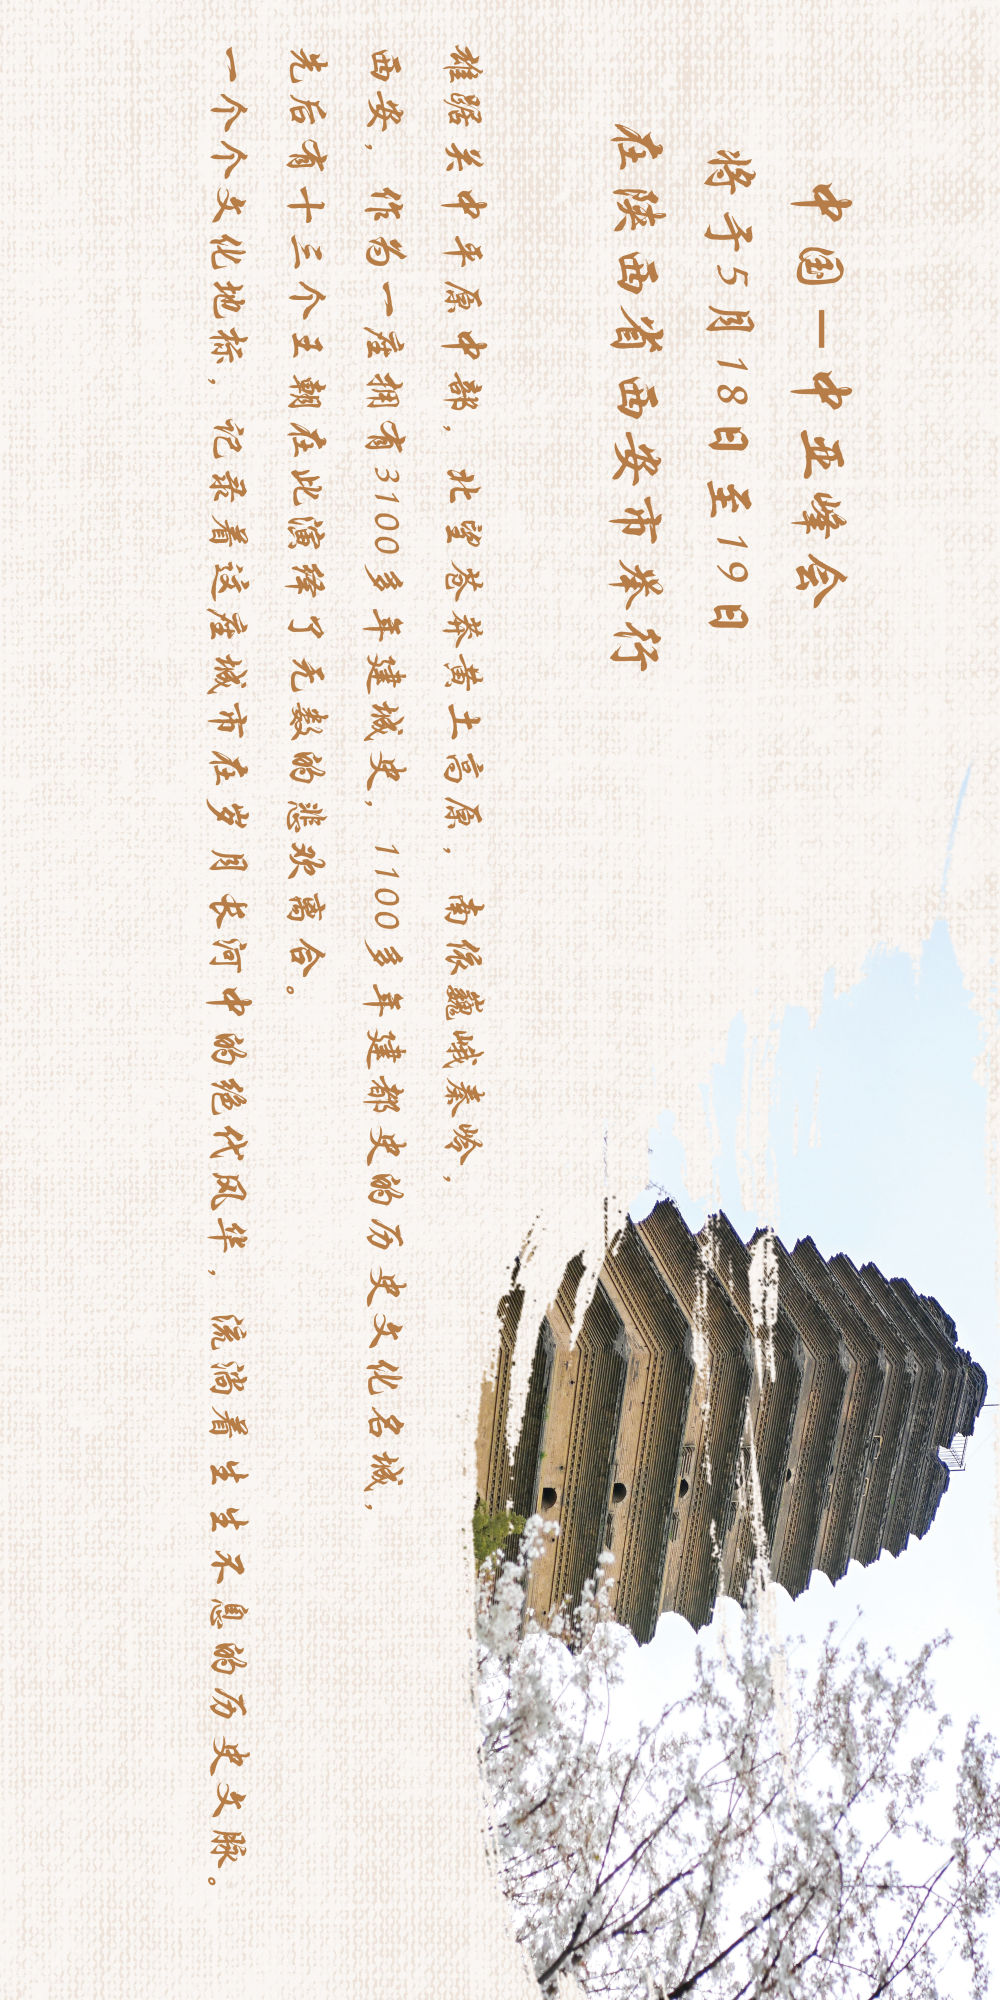 中国—中亚峰会
将于5月18日至19日
在陕西省西安市举行
雄踞关中平原中部，北望苍莽黄土高原，南依巍峨秦岭，
西安，作为一座拥有3100多年建城史，1100多年建都史的历史文化名城，
先后有十三个王朝在此演绎了无数的悲欢离合。
一个个文化地标，记录着这座城市在岁月长河中的绝代风华，流淌着生生不息的历史文脉。